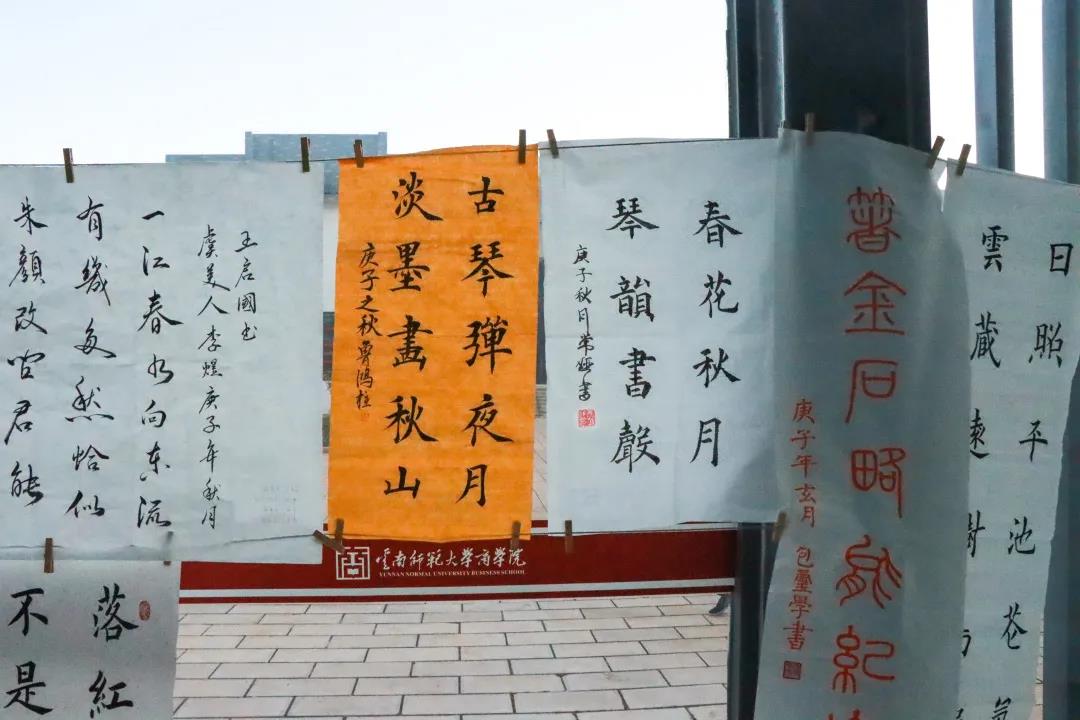 朱顏改问君能
有幾多愁恰似
一江春水向东流
虞美人李煜庚子年秋月
王启國书
古琴彈夜月
淡墨畫秋山
庚子之秋魯鴻柱
春花秋月
琴韻書聲
庚子秋月
著金石略能紀
庚子年玄月 包靈學書
日照平池苍
雲藏遠樹
落紅
不是
雲南师範大学商学院
YUNNAN NORMAL UNIVERSITY BUSINESS SCHOOL